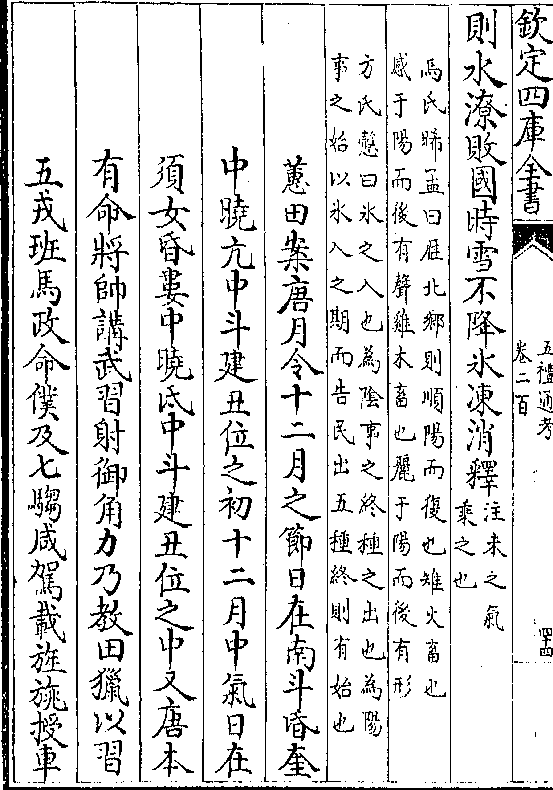 欽定四庫全書
五禮通考
卷二百
四十四
則水潦敗國時雪不降氷凍消釋注未之氣
乘之也
馬氏晞孟曰雁北鄉則順陽而復也雉火畜也
感于陽而後有聲雞木畜也麗于陽而後有形
方氏慤曰氷之入也為陰事之終種之出也為陽
事之始以氷入之期而告民出五種終則有始也
蕙田案唐月令十二月之節日在南斗昏奎
中曉亢中斗建丑位之初十二月中氣日在
須女昏婁中曉氐中斗建丑位之中又唐本
有命將帥講武習射御角力乃教田獵以習
五戎班馬政命僕及七騶咸駕載旌旐授車